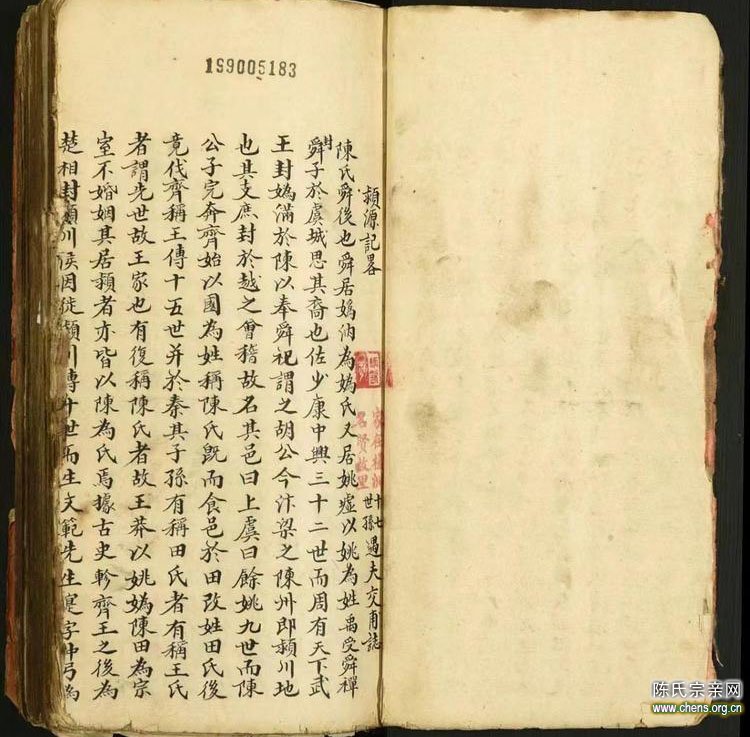 199005183
潁源記畧
十七世孫遇夫交甫誌
陳氏舜後也舜居媯汭為媯氏又居姚墟以姚為姓禹受舜禪
封舜子於虞城思其裔也佐少康中興三十二世而周有天下武
王封媯滿於陳以奉舜祀謂之胡公今汴梁之陳州即潁川地
也其支庶封於越之會稽故名其邑曰上虞曰餘姚九世而陳
公子完奔齊始以國為姓稱陳氏旣而食邑於田改姓田氏後
竟代齊稱王傳十五世并於秦其子孫有稱田氏者有稱王氏
者謂先世故王家也有復稱陳氏者故王莽以姚媯陳田為宗
室不婚姻其居潁者亦皆以陳為氏焉據古史軫齊王之後為
楚相封潁川侯因徙潁川傳十世而生文範先生寔字仲弓為
陳氏宗亲网
www.chens.org.cn